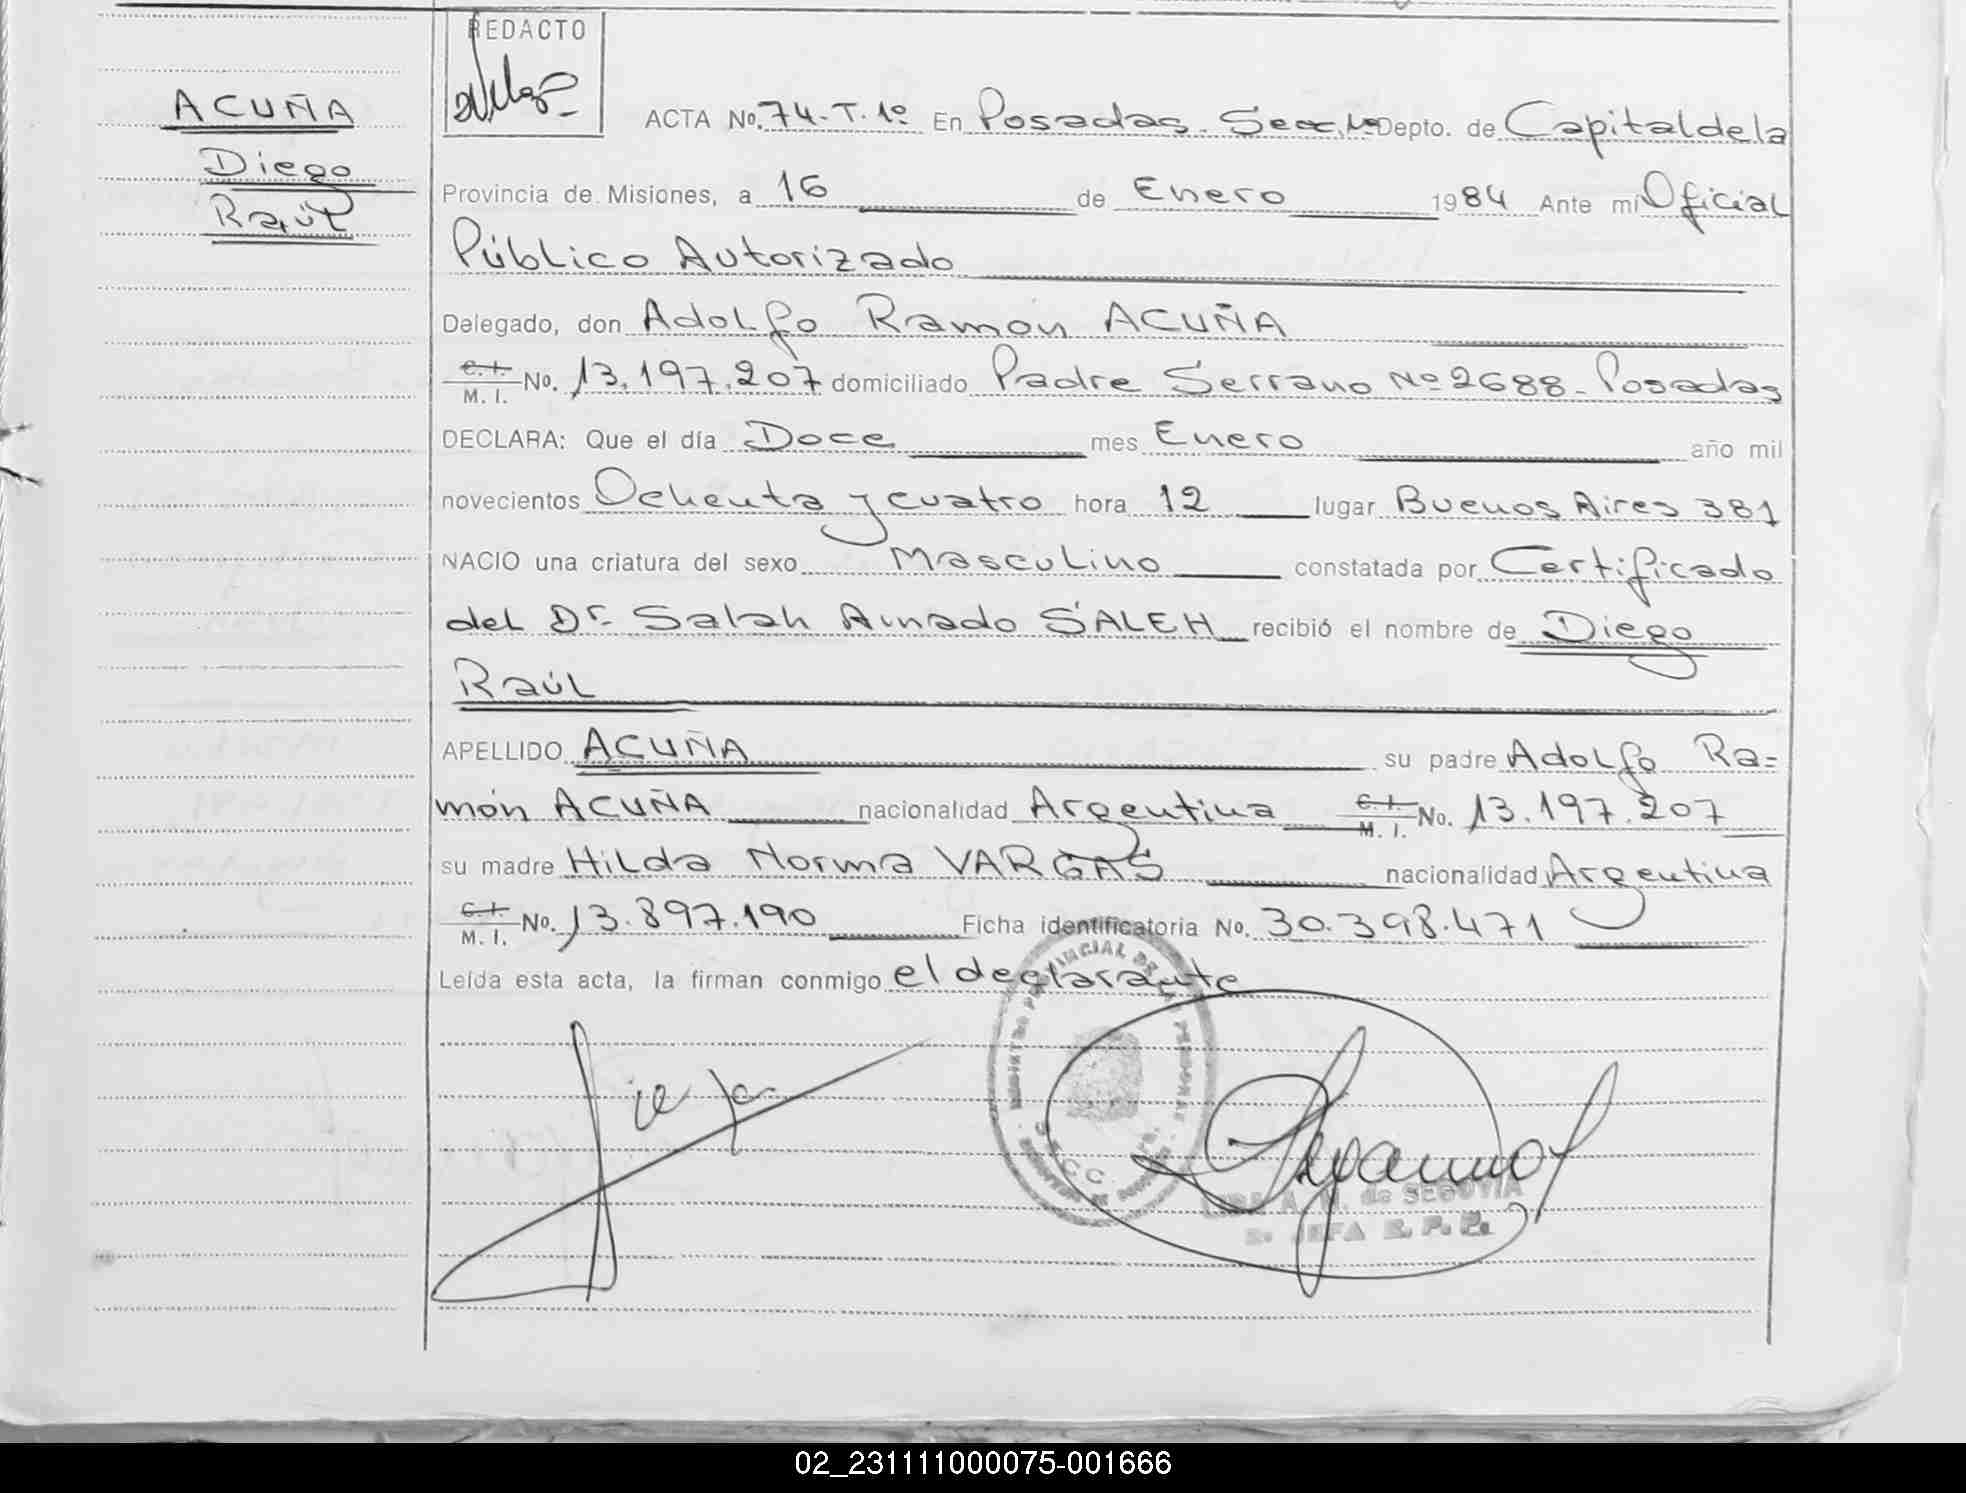 ACUÑA
Diego
Raúl
REDACTO
ACTA No. 74-T.1º En Posadas. Secc. 1ª Depto. de Capital de la
Provincia de Misiones, a 16 de Enero 1984 Ante mí Oficial
Público Autorizado
Delegado, don Adolfo Ramón ACUÑA
C.I. / M. I. No. 13.197.207 domiciliado Padre Serrano Nº 2688 - Posadas
DECLARA: Que el día Doce mes Enero año mil
novecientos Ochenta y cuatro hora 12 lugar Buenos Aires 381
NACIO una criatura del sexo Masculino constatada por Certificado
del Dr. Salah Amado SALEH recibió el nombre de Diego
Raúl
APELLIDO ACUÑA su padre Adolfo Ra=
món ACUÑA nacionalidad Argentina C.I. / M. I. No. 13.197.207
su madre Hilda Norma VARGAS nacionalidad Argentina
C.I. / M. I. No. 13.897.190 Ficha identificatoria No. 30.398.471
Leída esta acta, la firman conmigo el declarante
REGISTRO PROVINCIAL DE LAS PERSONAS
A. M. de SEGOVIA
JEFA R. P. P.
02_231111000075-001666